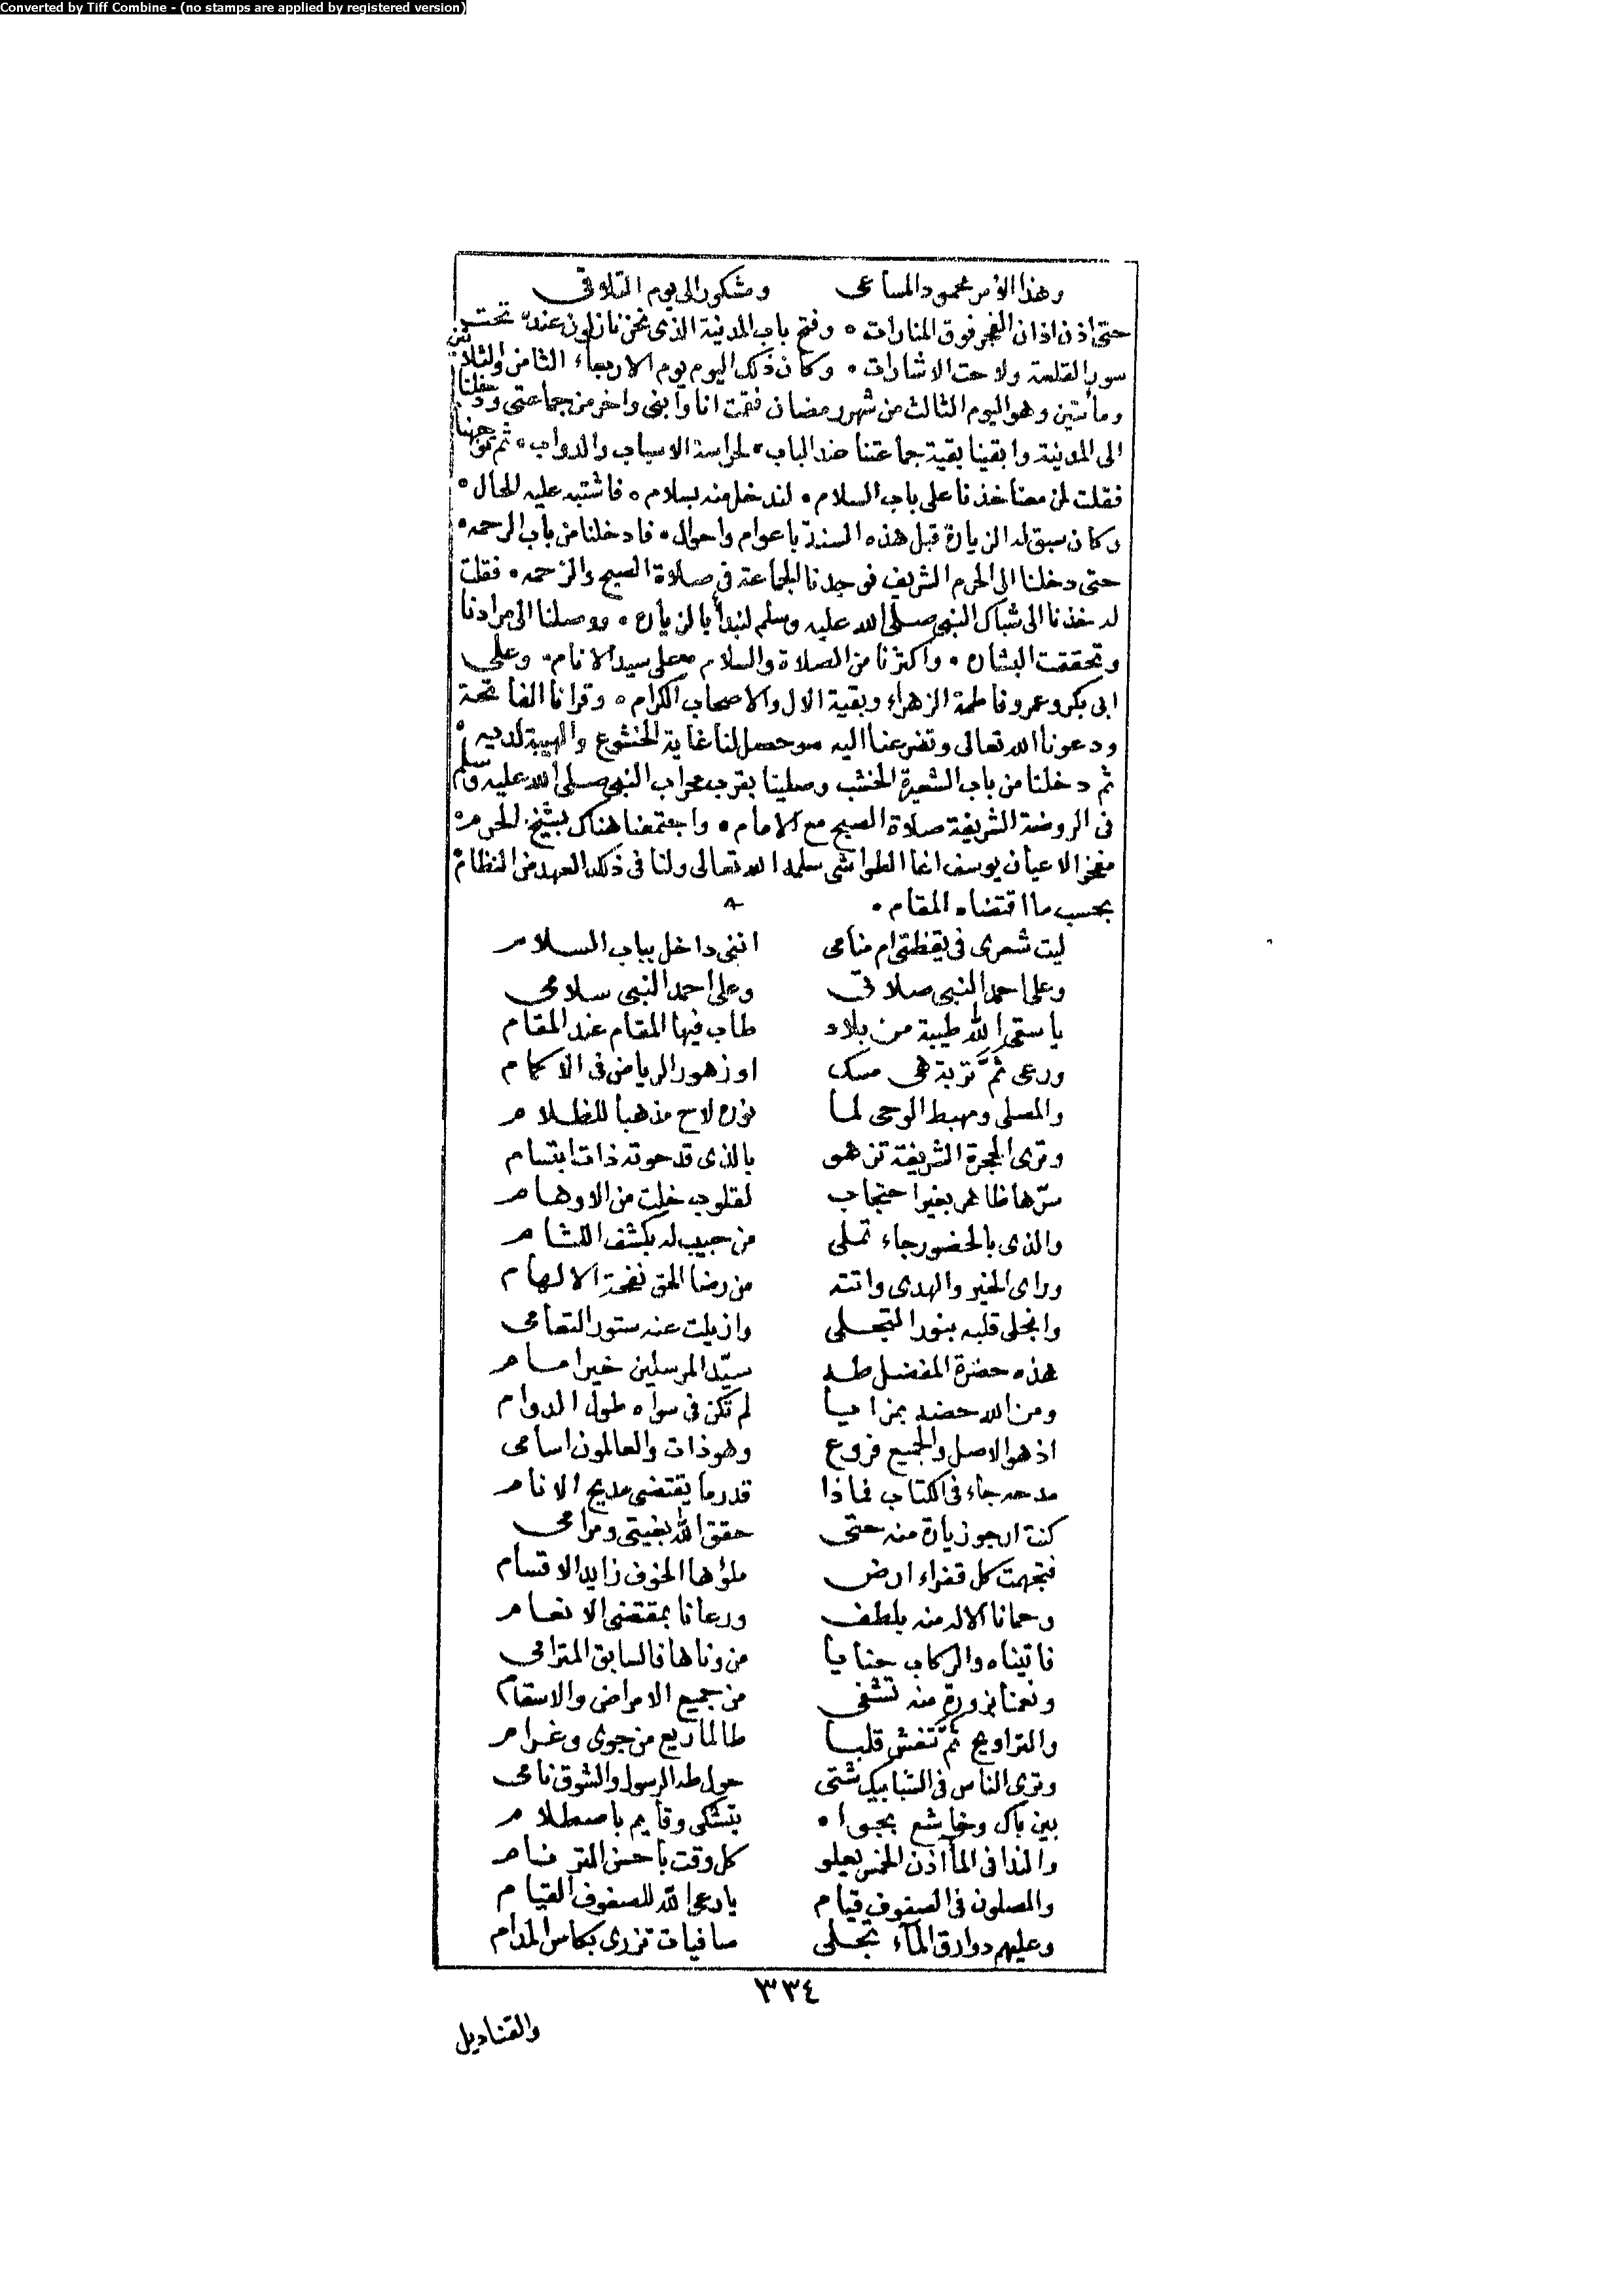 Converted by Tiff Combine - (no stamps are applied by registered version)
وهذا الأمر محمود المساعى ومشكور الى يوم التلاقى
حتى اذن اذان الفجر فوق المنارات ٠ وفتح باب المدينة الذى نحن نازلون عنده تحت
سور القلعة ولاحت الاشارات ٠ وكان ذلك اليوم يوم الاربعاء الثامن والثلاثين
ومأتين وهو اليوم الثالث من شهر رمضان فقمت انا وابنى واخر من جماعتى ودخلنا
الى المدينة وابقينا بقية جماعتنا عند الباب ٠ لحراسة الاسباب والدواب ٠ ثم توجهنا
فقلت لمن معنا خذنا على باب السلام ٠ لندخل منه بسلام ٠ فاشتبه عليه الحال ٠
وكان سبق له الزيارة قبل هذه السنة باعوام واحوال ٠ فادخلنا من باب الرحمه ٠
حتى دخلنا الى الحرم الشريف فوجدنا الجماعة فى صلاة الصبح والزحمه ٠ فقلت
له خذنا الى شباك النبى صلى الله عليه وسلم لنبدأ بالزياره ٠ ووصلنا الى مرادنا
وتحققت البشاره ٠ واكثرنا من الصلاة والسلام على سيد الانام ٠ وعلى
ابى بكر وعمر وفاطمة الزهراء وبقية الال والاصحاب الكرام ٠ وقرانا الفاتحة
ودعونا الله تعالى وتضرعنا اليه ٠ وحصل لنا غاية الخشوع والهيبة لديه ٠
ثم دخلنا من باب الشعيرة الخشب وصلينا بقرب محراب النبى صلى الله عليه وسلم
فى الروضة الشريفة صلاة الصبح مع الامام ٠ واجتمعنا هناك بشيخ الحرم ٠
مفخر الاعيان يوسف اغا الطواشى سلمه الله تعالى ولنا فى ذلك العهد من النظام
بحسب ما اقتضاه المقام ٠
ليت شعرى فى يقظتى ام منامى اننى داخل بباب السلام
وعلى احمد النبى صلاتى وعلى احمد النبى سلامى
يا سقى الله طيبة من بلاد طاب فيها المقام عند المقام
ورعى ثَمَّ تربة هى مسك او زهور الرياض فى الاكمام
والمصلى ومهبط الوحى لما نوره لاح مذهبا للظلام
وترى الحجرة الشريفة تزهو بالذى قد حوته ذات ابتسام
سرّها ظاهر بغير احتجاب لقلوب خلت من الاوهام
والذى بالحضور جاء تملى من حبيب له بكشف اللثام
وراى الخير والهدى واتته من رضا الحق نفحة الالهام
وانجلى قلبه بنور التجلى وازيلت عنه ستور التعامى
هذه حضرة المفضل طه سيّد المرسلين خير امام
ومن الله حضه بمزايا لم تكن فى سواه طول الدوام
اذ هو الاصل والجميع فروع وهو ذات والعالمون اسامى
مدحه جاء فى الكتاب فماذا قدر ما يقتضى مديح الانام
كنت ارجو زيارة منه حتى حقق الله بغيتى ومرامى
فتجهمت كل قفراء ارض ملؤها الخوف زايد الاقسام
وحمانا الاله منه بلطف ورعانا بمقتضى الانعام
فاتيناه والركاب حنايا من وناها فالسابق المترامى
ونعمنا بزورة منه تشفى من جميع الامراض والاسقام
والتراويح ثَمَّ تنعش قلبا طالما ريع من جوى وغرام
وترى الناس فى الشبابيك شتى حول طه الرسول والشوق نامى
بين باك وخاشع بجواه يتشكى وقايم باصطلام
والندا فى المآذن الخمس يعلو كل وقت باحسن الترنام
والمصلون فى الصفوف قيام يا رعى الله للصفوف القيام
وعليهم دوارق الماء تجلى صافيات تزرى بكاس المدام
٣٣٤
والقناديل